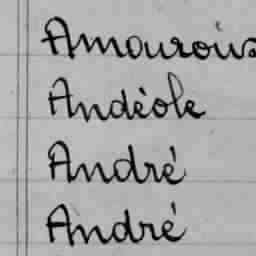 Amouroux
Andéole
André
André